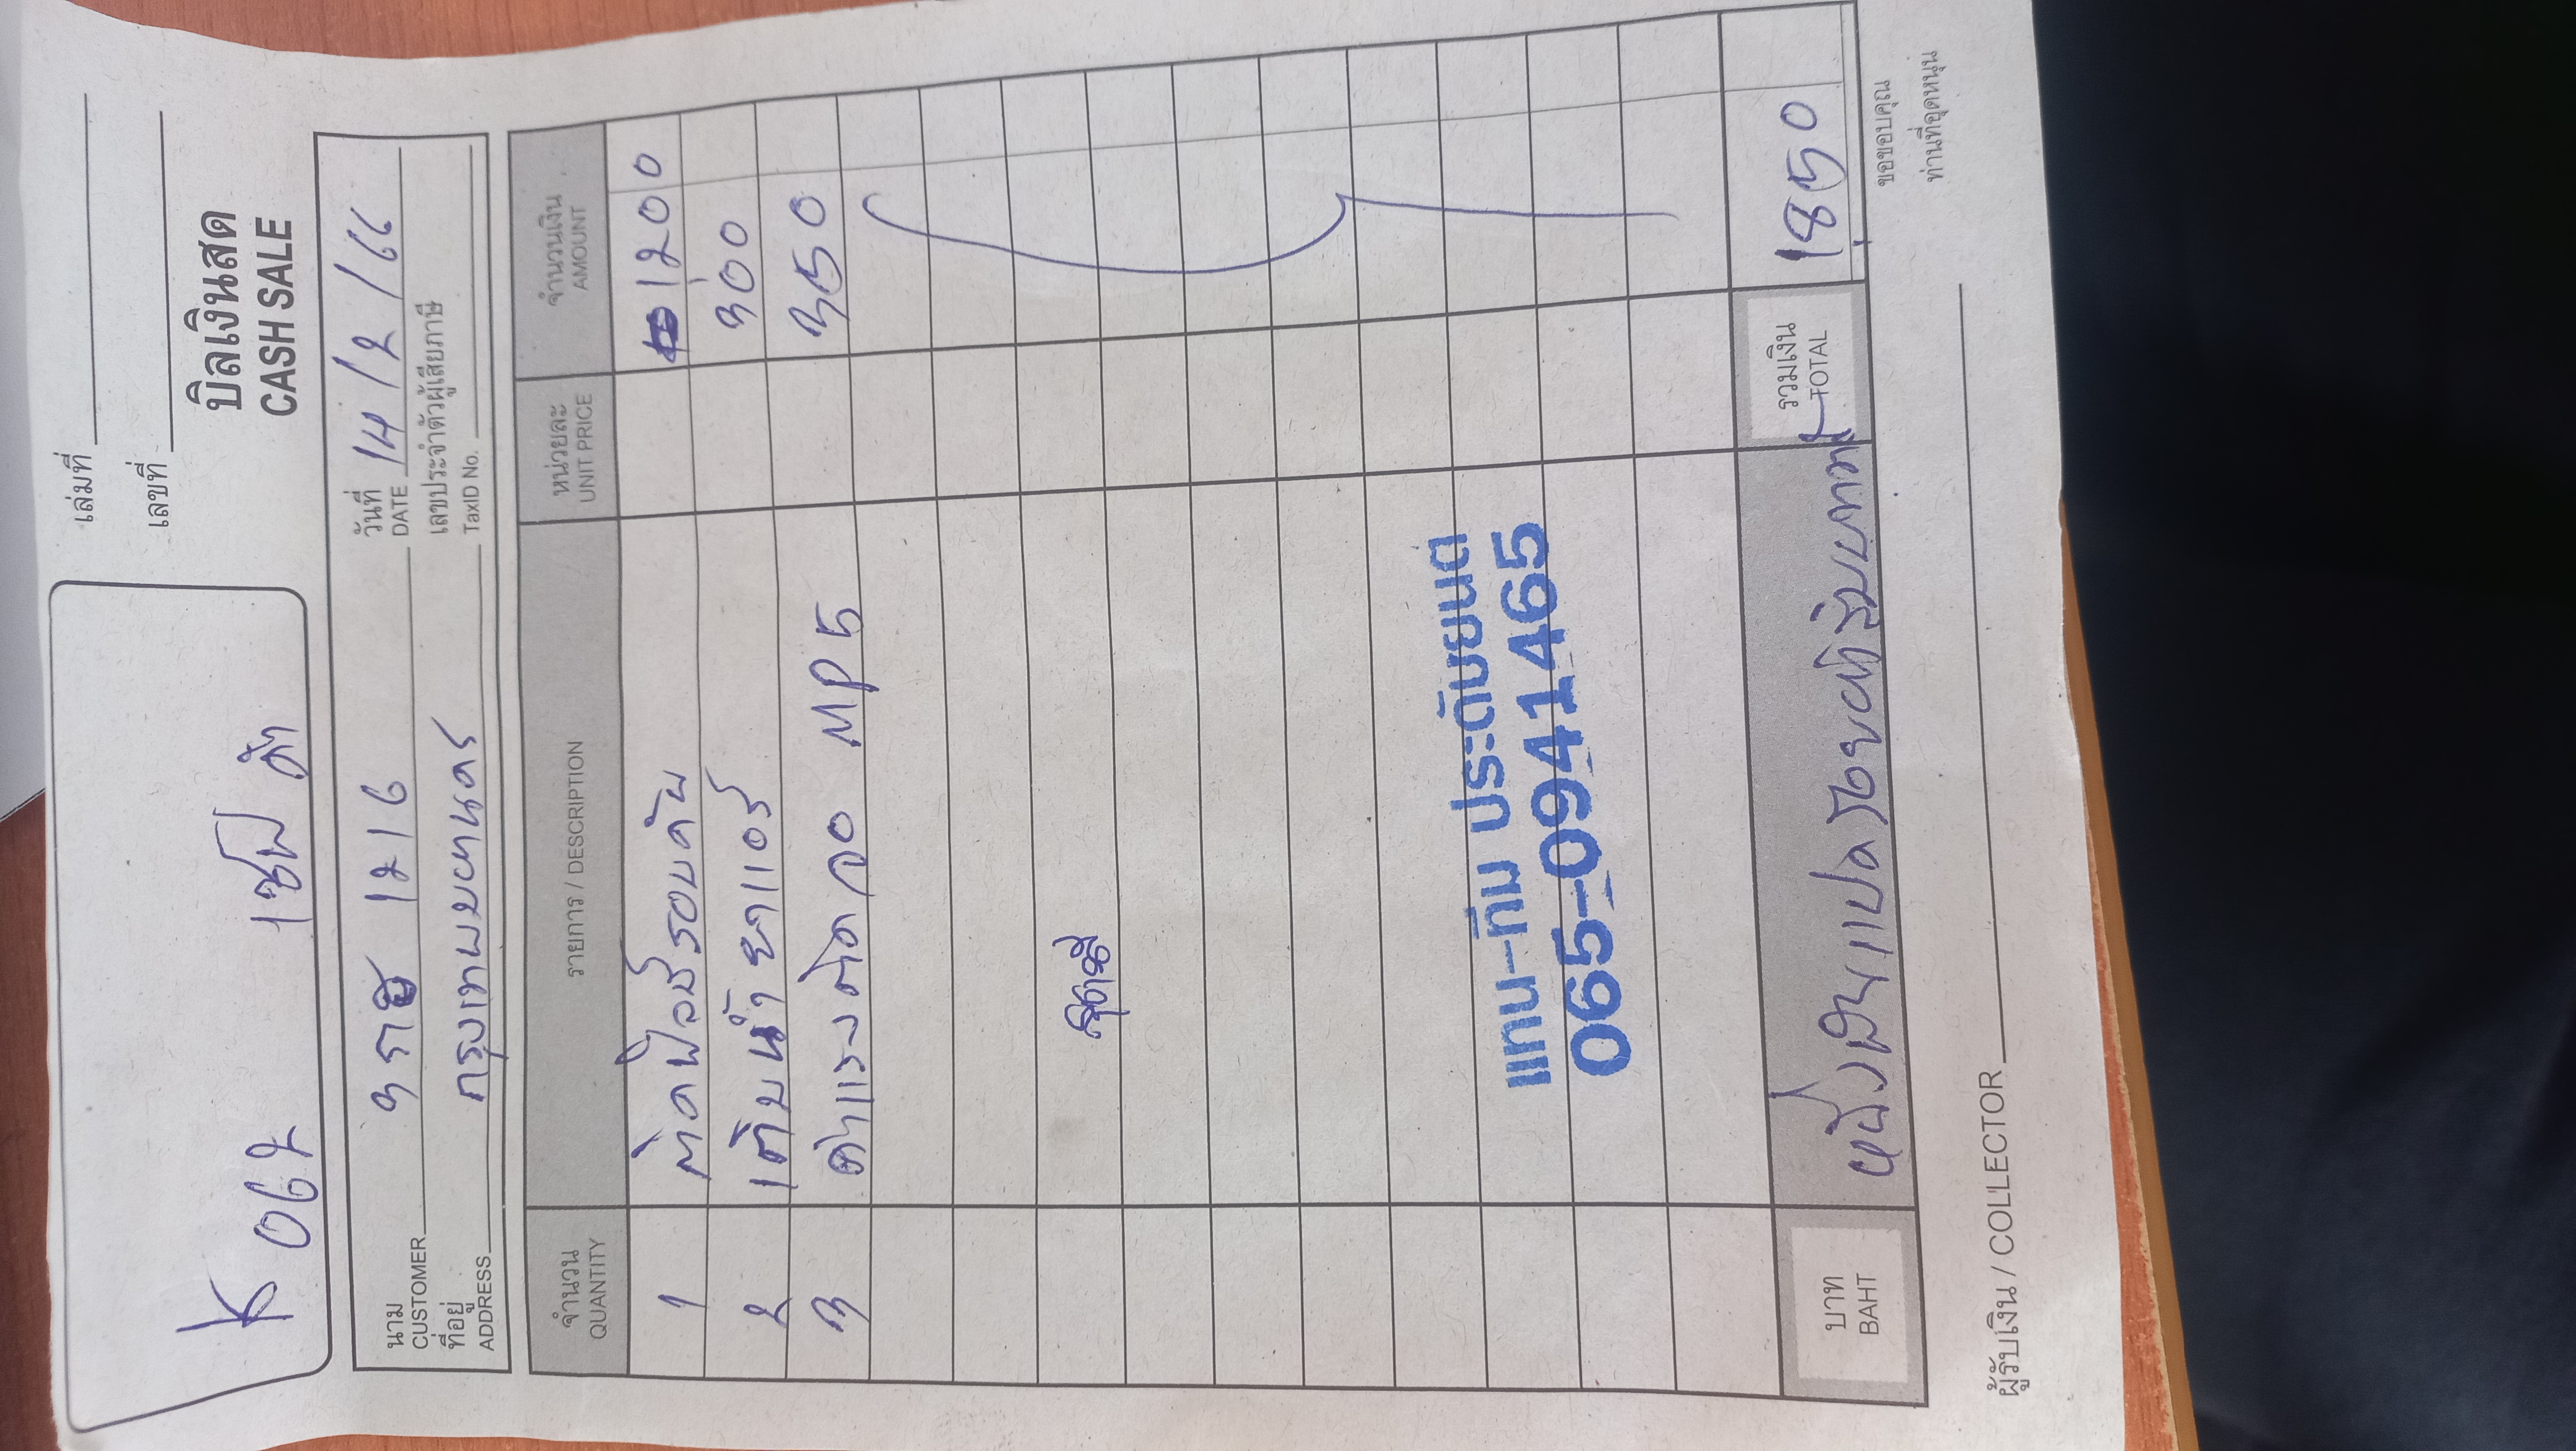 เล่มที่
เลขที่
บิลเงินสด
CASH SALE
K 062 เซฟ ดำ
นาม CUSTOMER 3 กฮ 1216 วันที่ DATE 14/2/66
ที่อยู่ ADDRESS กรุงเทพมหานคร เลขประจำตัวผู้เสียภาษี TaxID No.
จำนวน QUANTITY รายการ / DESCRIPTION หน่วยละ UNIT PRICE จำนวนเงิน AMOUNT
1 ติดฟิล์มรอบคัน 1200
2 เติมน้ำยาแอร์ 300
3 ค่าแรงติดจอ MP5 350
แทน-ทีม ประดับยนต์
065-0941465
บาท BAHT หนึ่งพันแปดร้อยห้าสิบบาท รวมเงิน TOTAL 1850
ขอขอบคุณ
ท่านที่อุดหนุน
ผู้รับเงิน / COLLECTOR